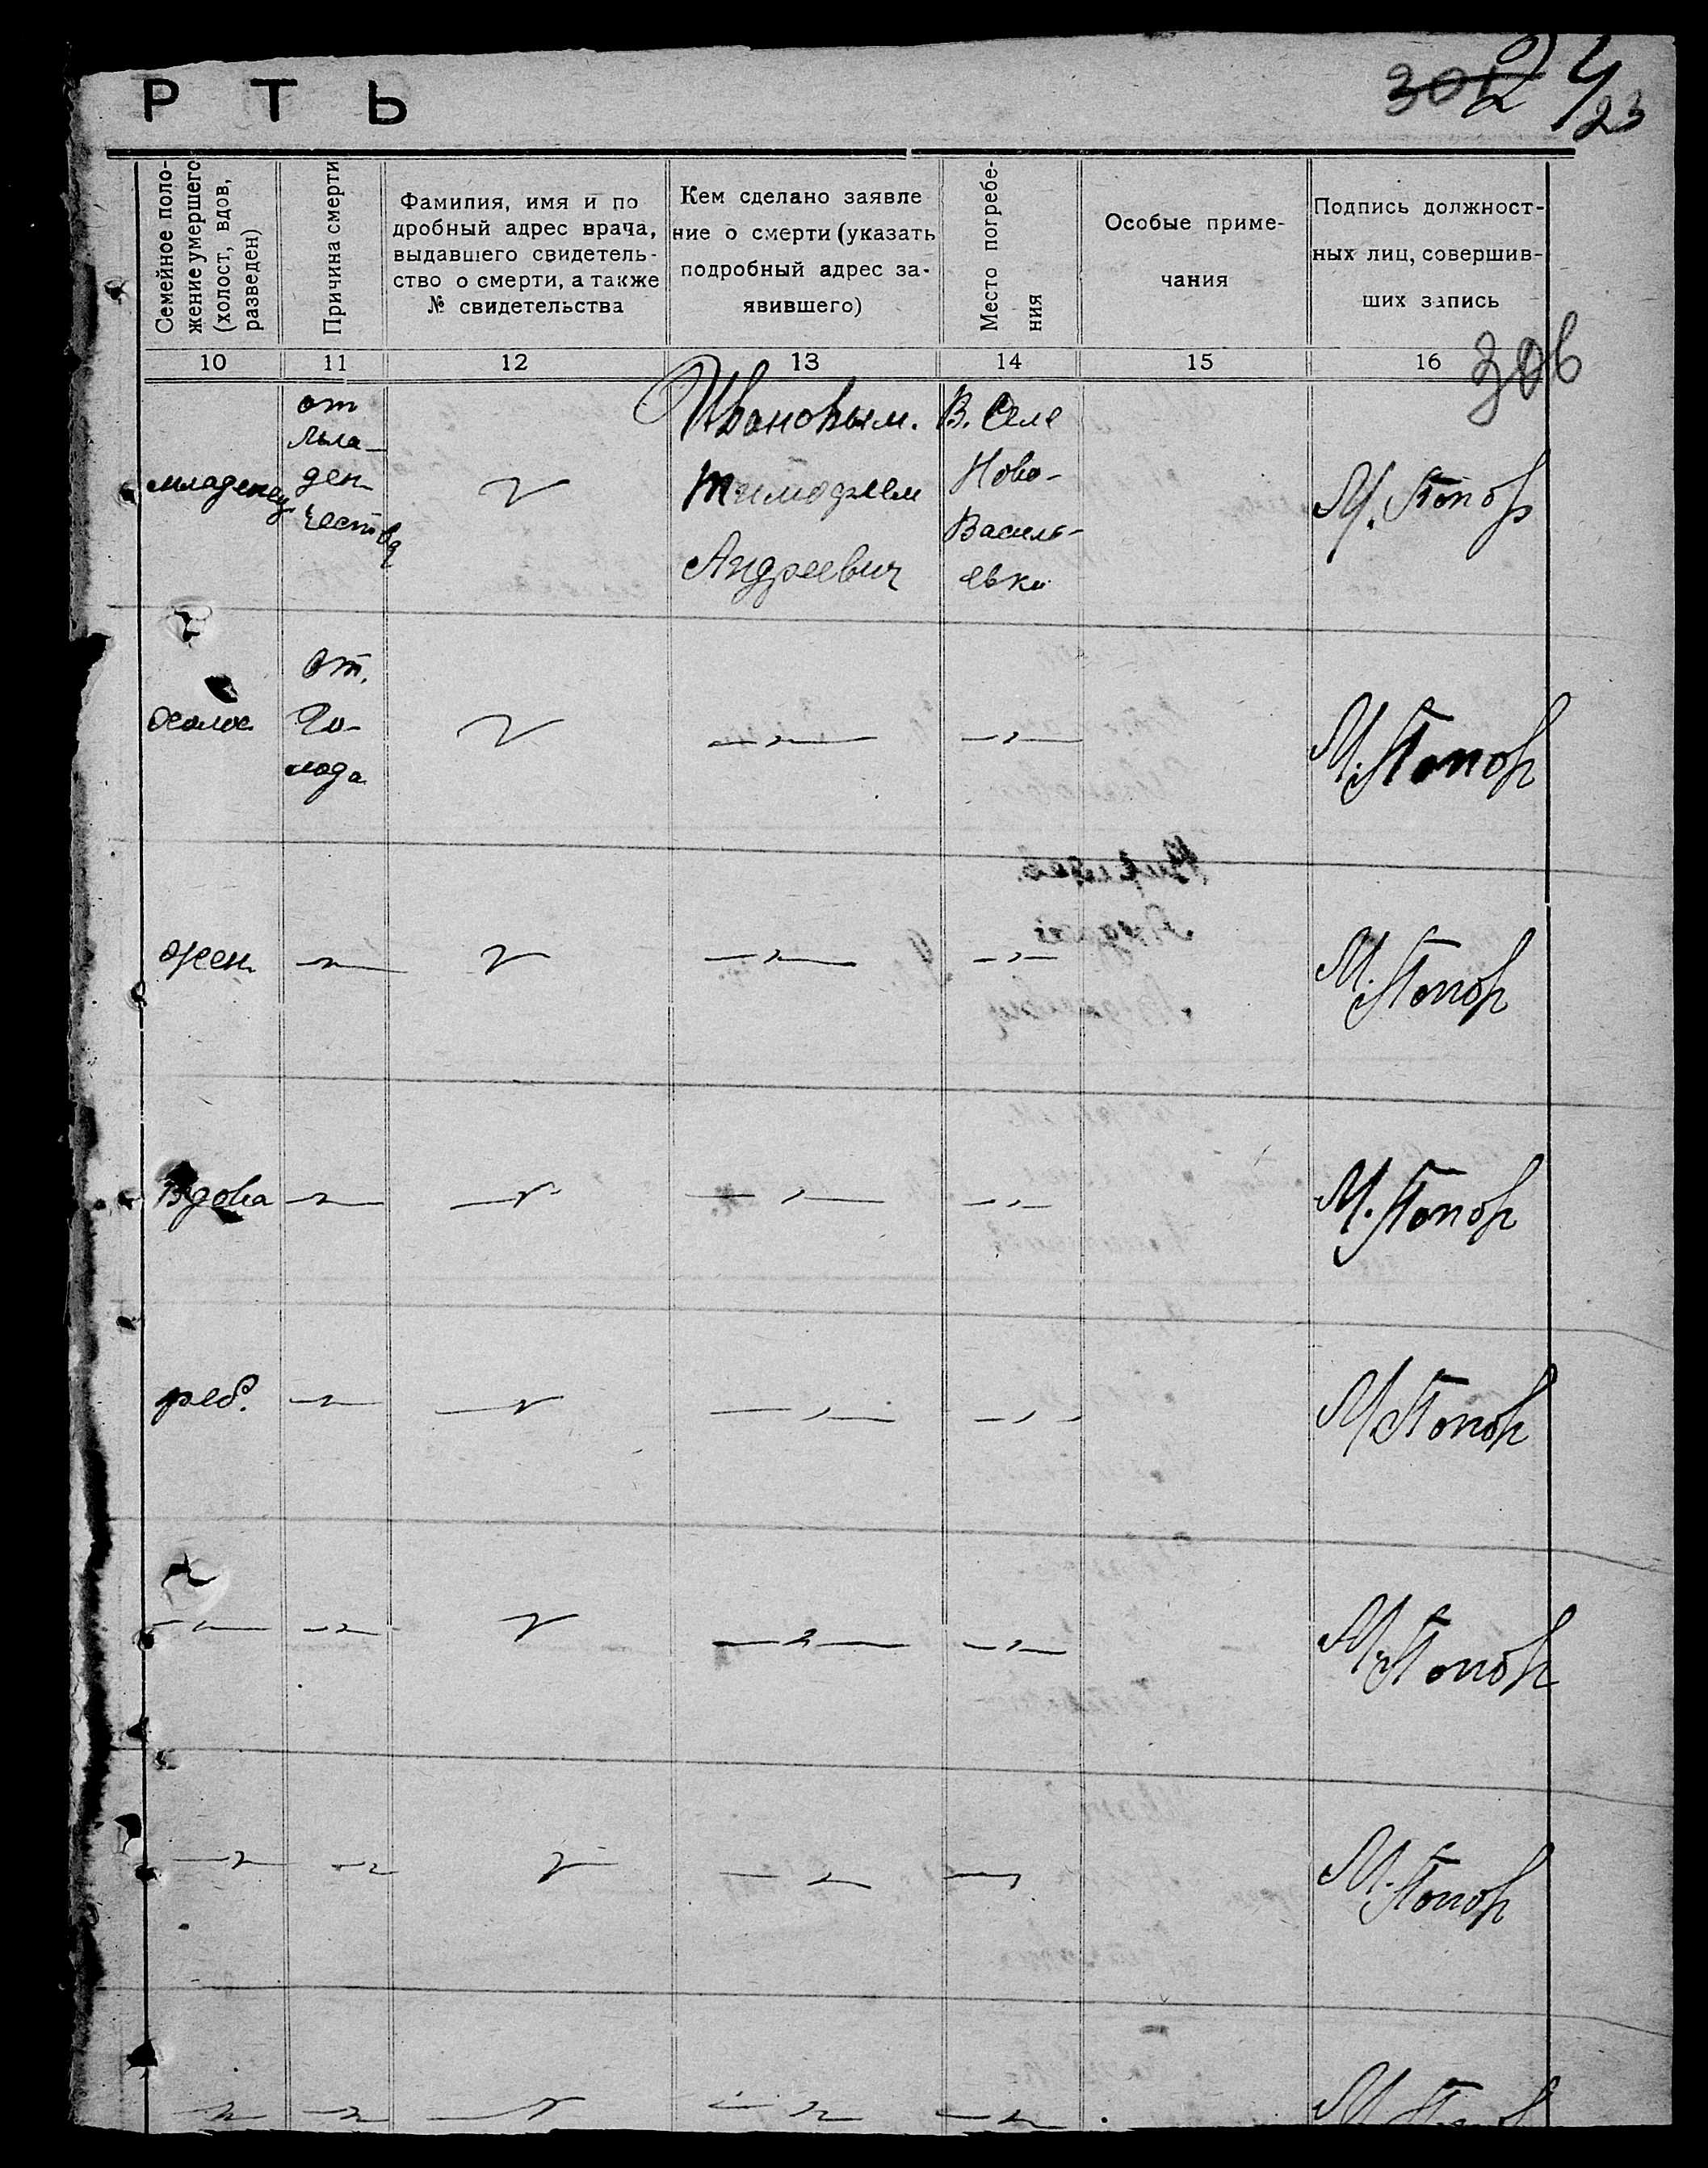 Р Т Ь
301 24
23
Семейное поло-
жение умершего
(холост, вдов,
разведен)
Причина смерти
Фамилия, имя и по
дробный адрес врача,
выдавшего свидетель-
ство о смерти, а также
№ свидетельства
Кем сделано заявле
ние о смерти (указать
подробный адрес за-
явившего)
Место погребе-
ния
Особые приме-
чания
Подпись должност-
ных лиц, совершив-
ших запись
10 11 12 13 14 15 16
306
младенец
от
мла-
ден-
чества
Ивановым.
Тимофеем
Андреевич
В. Селе
Ново-
Василь-
евки
М. Топор
холос.
от.
Го-
лода
М. Топор
жен.
М. Топор
Вдова
М. Топор
реб.
М. Топор
М. Топор
М. Топор
М. Топор